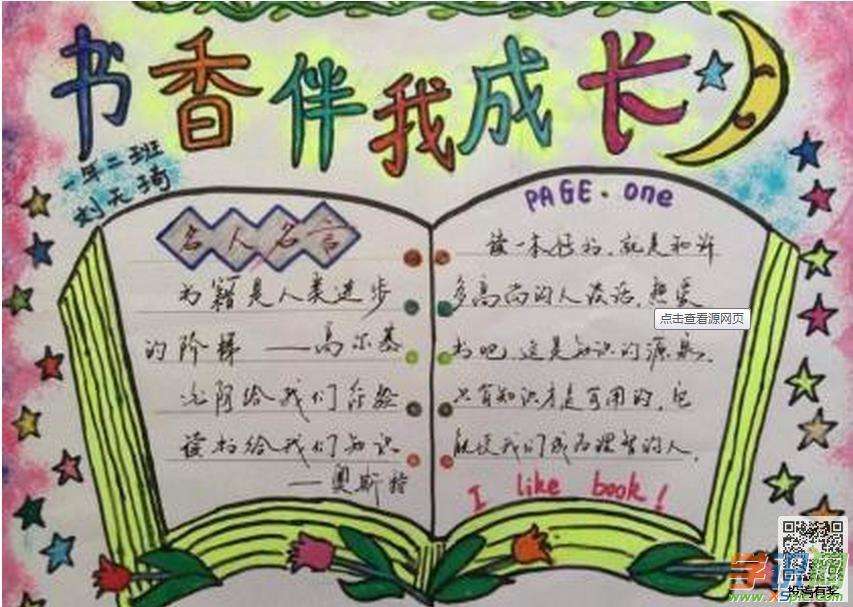 书香伴我成长
一年二班
刘天琦
名人名言
书籍是人类进步
的阶梯 ——高尔基
给我们经验
读书给我们知识
——奥斯特
PAGE.one
读一本好书,就是和许
多高尚的人谈话,热爱
点击查看源网页
书吧,这是知识的源泉。
只有知识才是可用的,它
能使我们成为理智的人。
I like book!